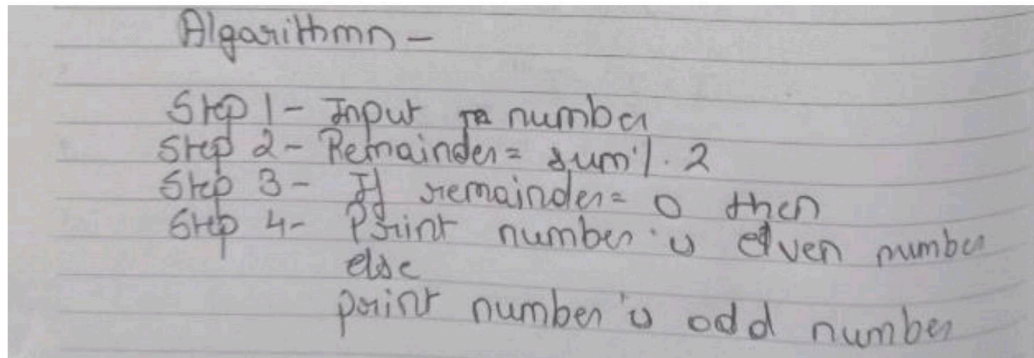 Algarithmn -
Step 1 - Input a number
Step 2 - Remainder = sum % 2
Step 3 - If remainder = 0 then
Step 4 - Print number is even number
else
print number is odd number